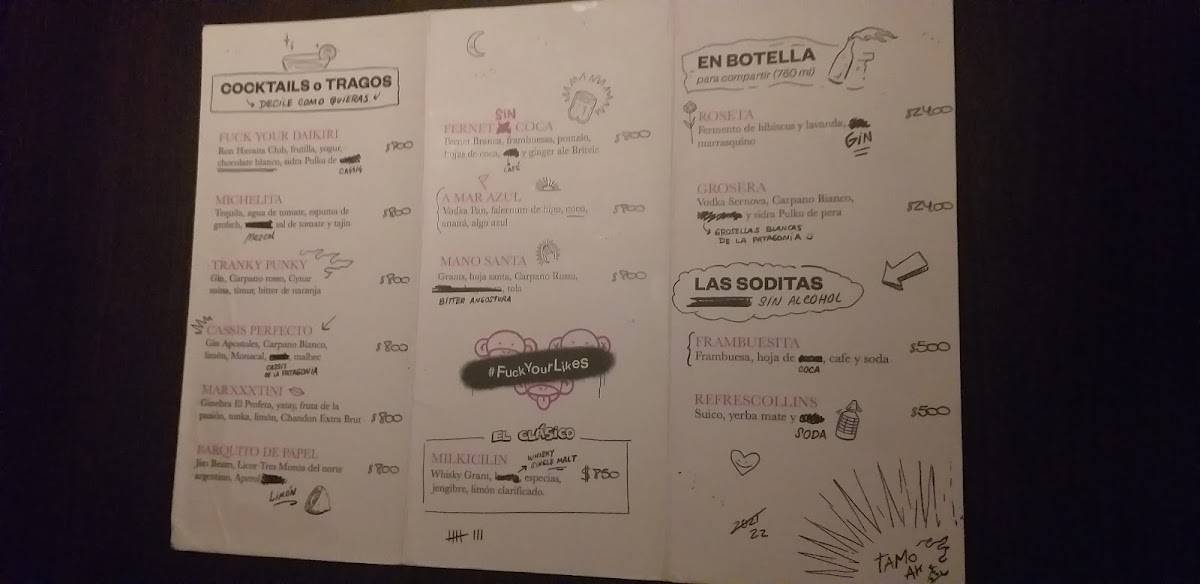 COCKTAILS o TRAGOS
DECILE COMO QUIERAS
FUCK YOUR DAIKIRI
Ron Havana Club, frutilla, yogur, $800
chocolate blanco, sidra Pulku de
CASSIS
MICHELITA
Tequila, agua de tomate, espuma de $800
grolsch, sal de tomate y tajin
MEZCAL
TRANKY PUNKY
Gin, Carpano rosso, Cynar $800
timur, bitter de naranja
CASSIS PERFECTO
Gin Apostoles, Carpano Bianco, $800
limón, Monacal, malbec
CASSIS
DE LA PATAGONIA
MARXXXTINI
Ginebra El Profeta, yatay, fruta de la
pasión, tonka, limón, Chandon Extra Brut $800
BARQUITO DE PAPEL
Jim Beam, Licor Tres Monos del norte $800
argentino, Aperol
LIMÓN
SIN
FERNET COCA
Fernet Branca, frambuesas, pomelo, $800
hojas de coca, y ginger ale Britvic
CAFÉ
A MAR AZUL
Vodka Pan, falernum de hipo, coco, $800
ananá, algo azul
MANO SANTA
Grants, hoja santa, Carpano Rosso, $800
BITTER ANGOSTURA
#FuckYourLikes
EL CLÁSICO
MILKICILIN
WHISKY
SINGLE MALT
Whisky Grant, especias, $850
jengibre, limón clarificado.
EN BOTELLA
para compartir (760 ml)
ROSETA
Fermento de hibiscus y lavanda, $2400
marrasquino
GIN
GROSERA
Vodka Sernova, Carpano Bianco, $2400
y sidra Pulku de pera
GROSELLAS BLANCAS
DE LA PATAGONIA
LAS SODITAS
SIN ALCOHOL
FRAMBUESITA
Frambuesa, hoja de cafe y soda $500
COCA
REFRESCOLLINS
Suico, yerba mate y $500
SODA
2021
22
TAMO